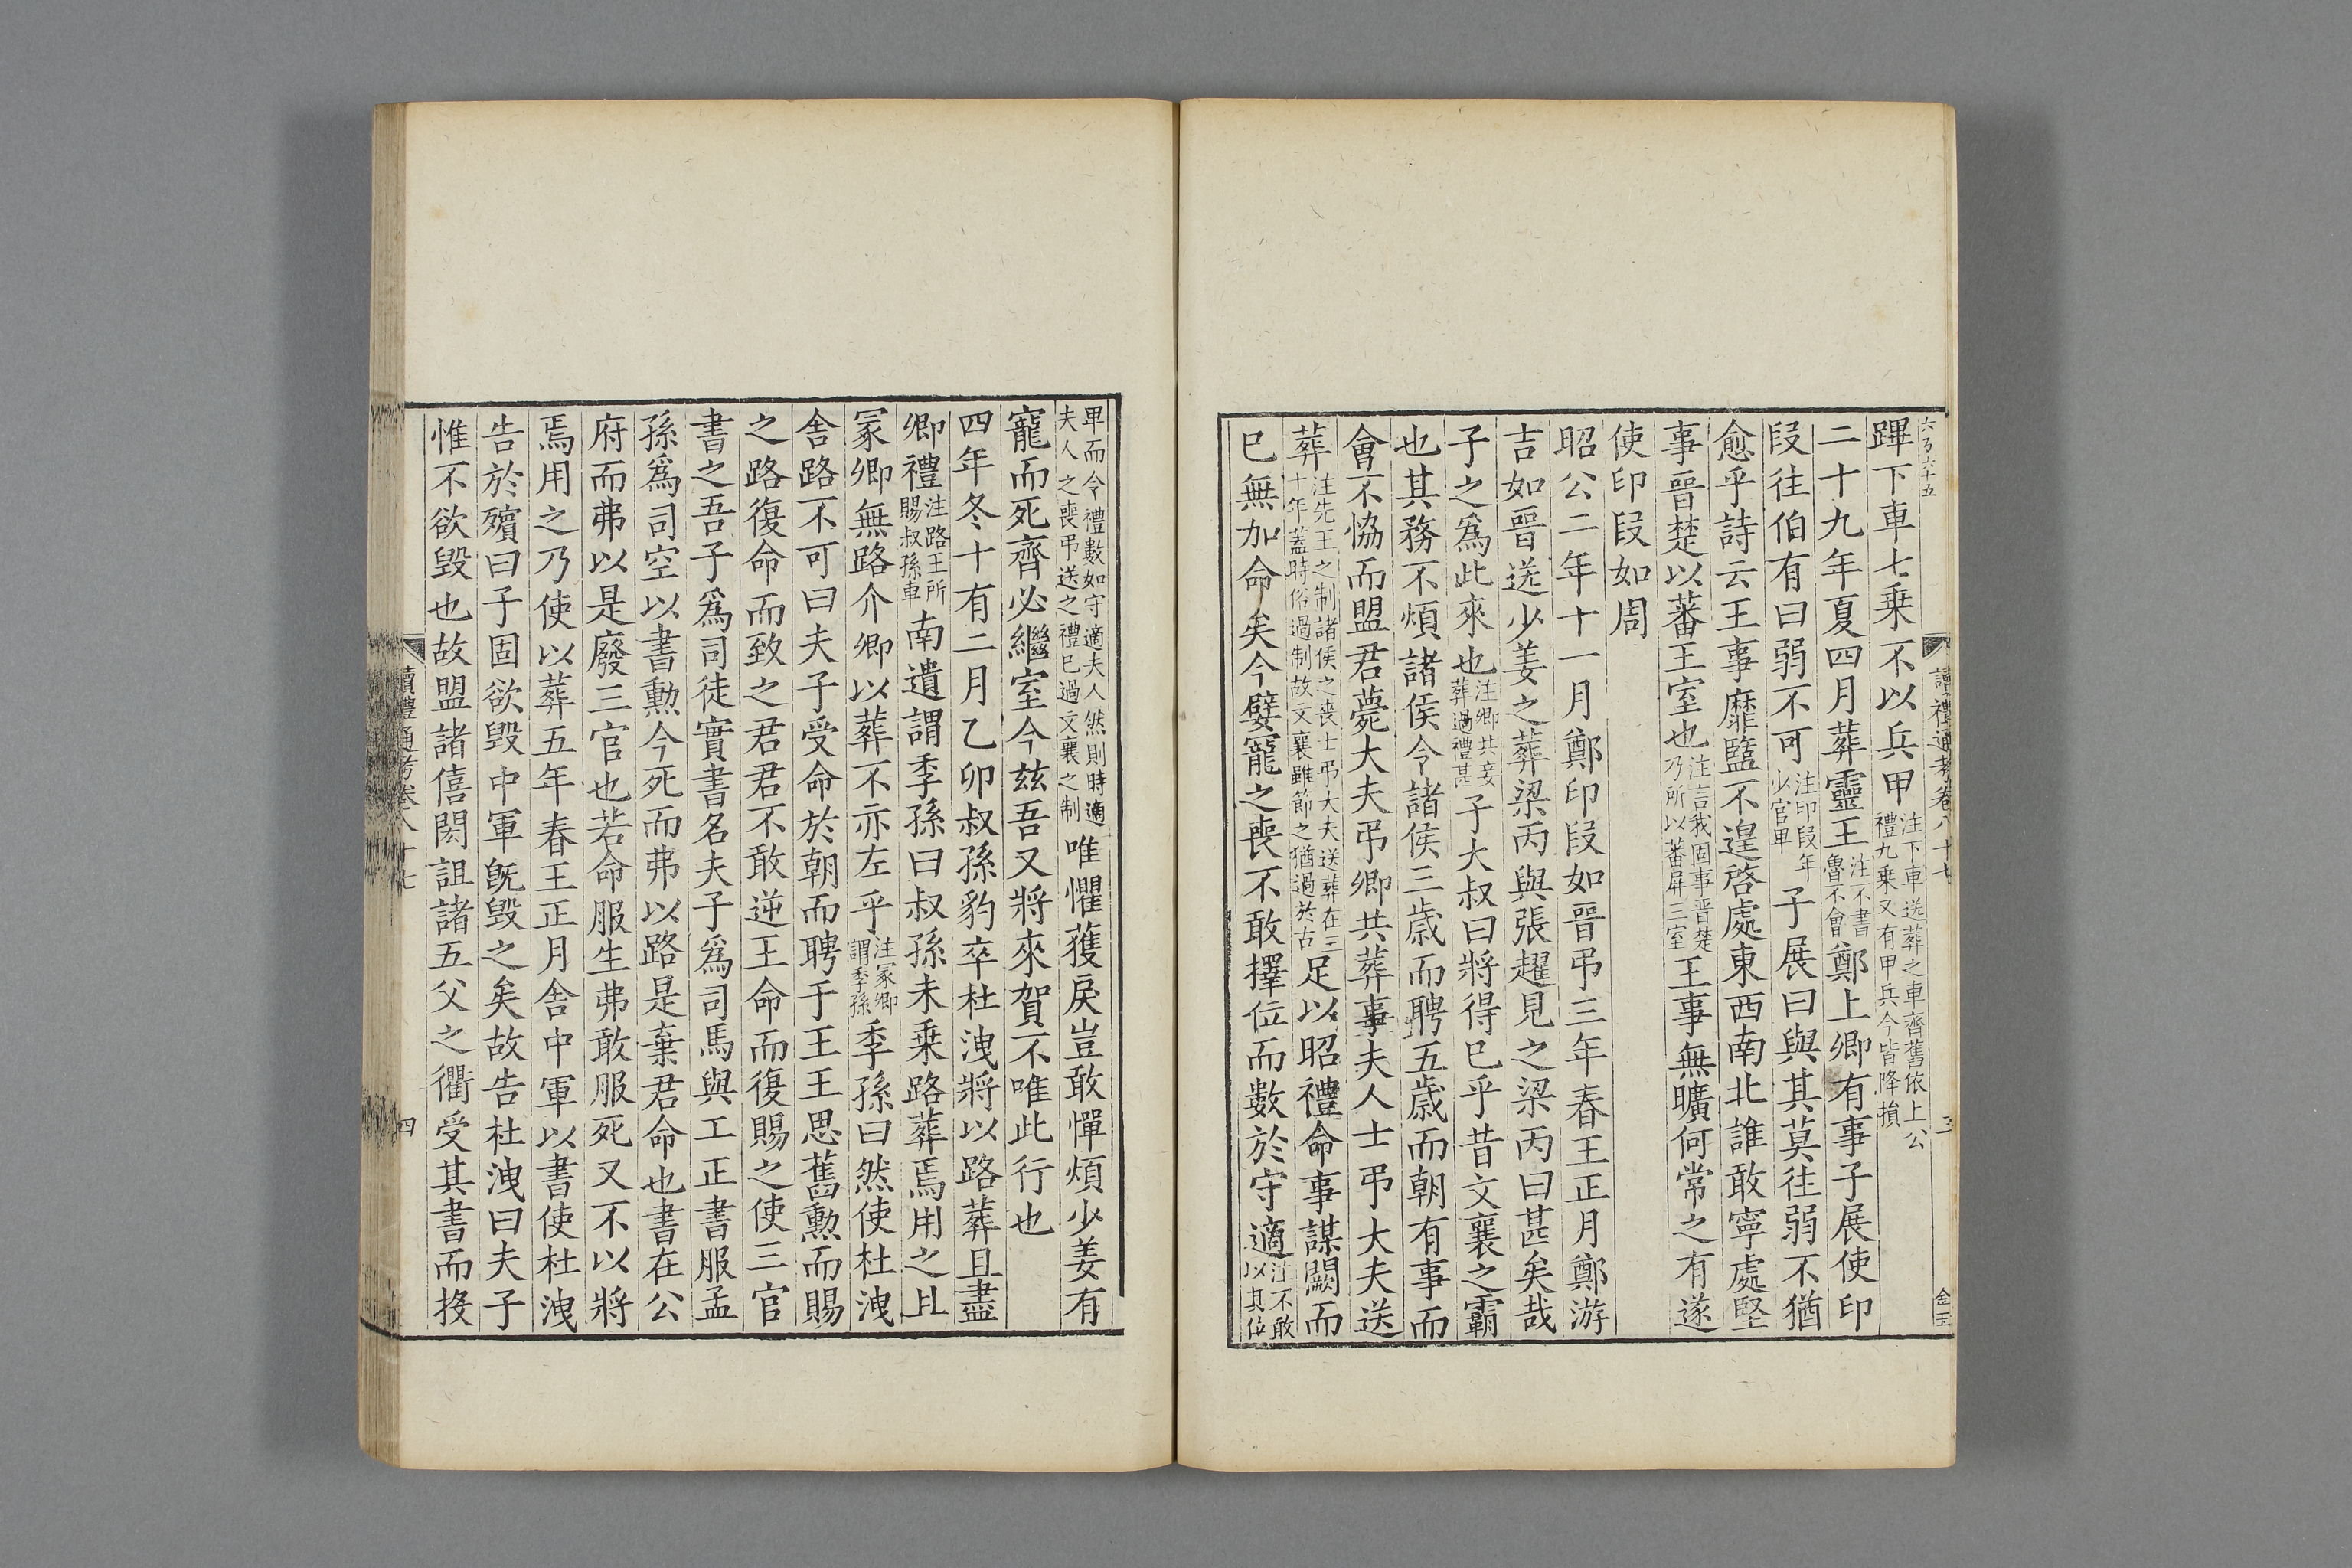 蹕下車七乘不以兵甲注下車送葬之車齊舊依上公禮九乘又有甲兵今皆降損
二十九年夏四月葬靈王注不書魯不會鄭上卿有事子展使印
段往伯有曰弱不可注印段年少官卑子展曰與其莫往弱不猶
愈乎詩云王事靡盬不遑啓處東西南北誰敢寧處堅
事晉楚以蕃王室也注言我固事晉楚乃所以蕃屏王室王事無曠何常之有遂
使印段如周
昭公二年十一月鄭印段如晉弔三年春王正月鄭游
吉如晉送少姜之葬梁丙與張趯見之梁丙曰甚矣哉
子之爲此來也注卿共妾葬過禮甚子大叔曰將得已乎昔文襄之霸
也其務不煩諸侯令諸侯三歲而聘五歲而朝有事而
會不恊而盟君薨大夫弔卿共葬事夫人士弔大夫送
葬注先王之制諸侯之喪士弔大夫送葬在三十年蓋時俗過制故文襄雖節之猶過於古足以昭禮命事謀闕而
已無加命矣今嬖寵之喪不敢擇位而數於守適注不敢以其位
卑而令禮數如守適夫人然則時適夫人之喪弔送之禮已過文襄之制唯懼獲戾豈敢憚煩少姜有
寵而死齊必繼室今兹吾又將來賀不唯此行也
四年冬十有二月乙卯叔孫豹卒杜洩將以路葬且盡
卿禮注路王所賜叔孫車南遺謂季孫曰叔孫未乗路葬焉用之且
冢卿無路介卿以葬不亦左乎注冢卿謂季孫季孫曰然使杜洩
舍路不可曰夫子受命於朝而聘于王王思舊勲而賜
之路復命而致之君君不敢逆王命而復賜之使三官
書之吾子爲司徒實書名夫子爲司馬與工正書服孟
孫爲司空以書勲今死而弗以路是棄君命也書在公
府而弗以是廢三官也若命服生弗敢服死又不以將
焉用之乃使以葬五年春王正月舍中軍以書使杜洩
告於殯曰子固欲毀中軍旣毀之矣故告杜洩曰夫子
惟不欲毀也故盟諸僖閎詛諸五父之衢受其書而投
讀禮通考卷八十七
三
讀禮通考卷八十七
四